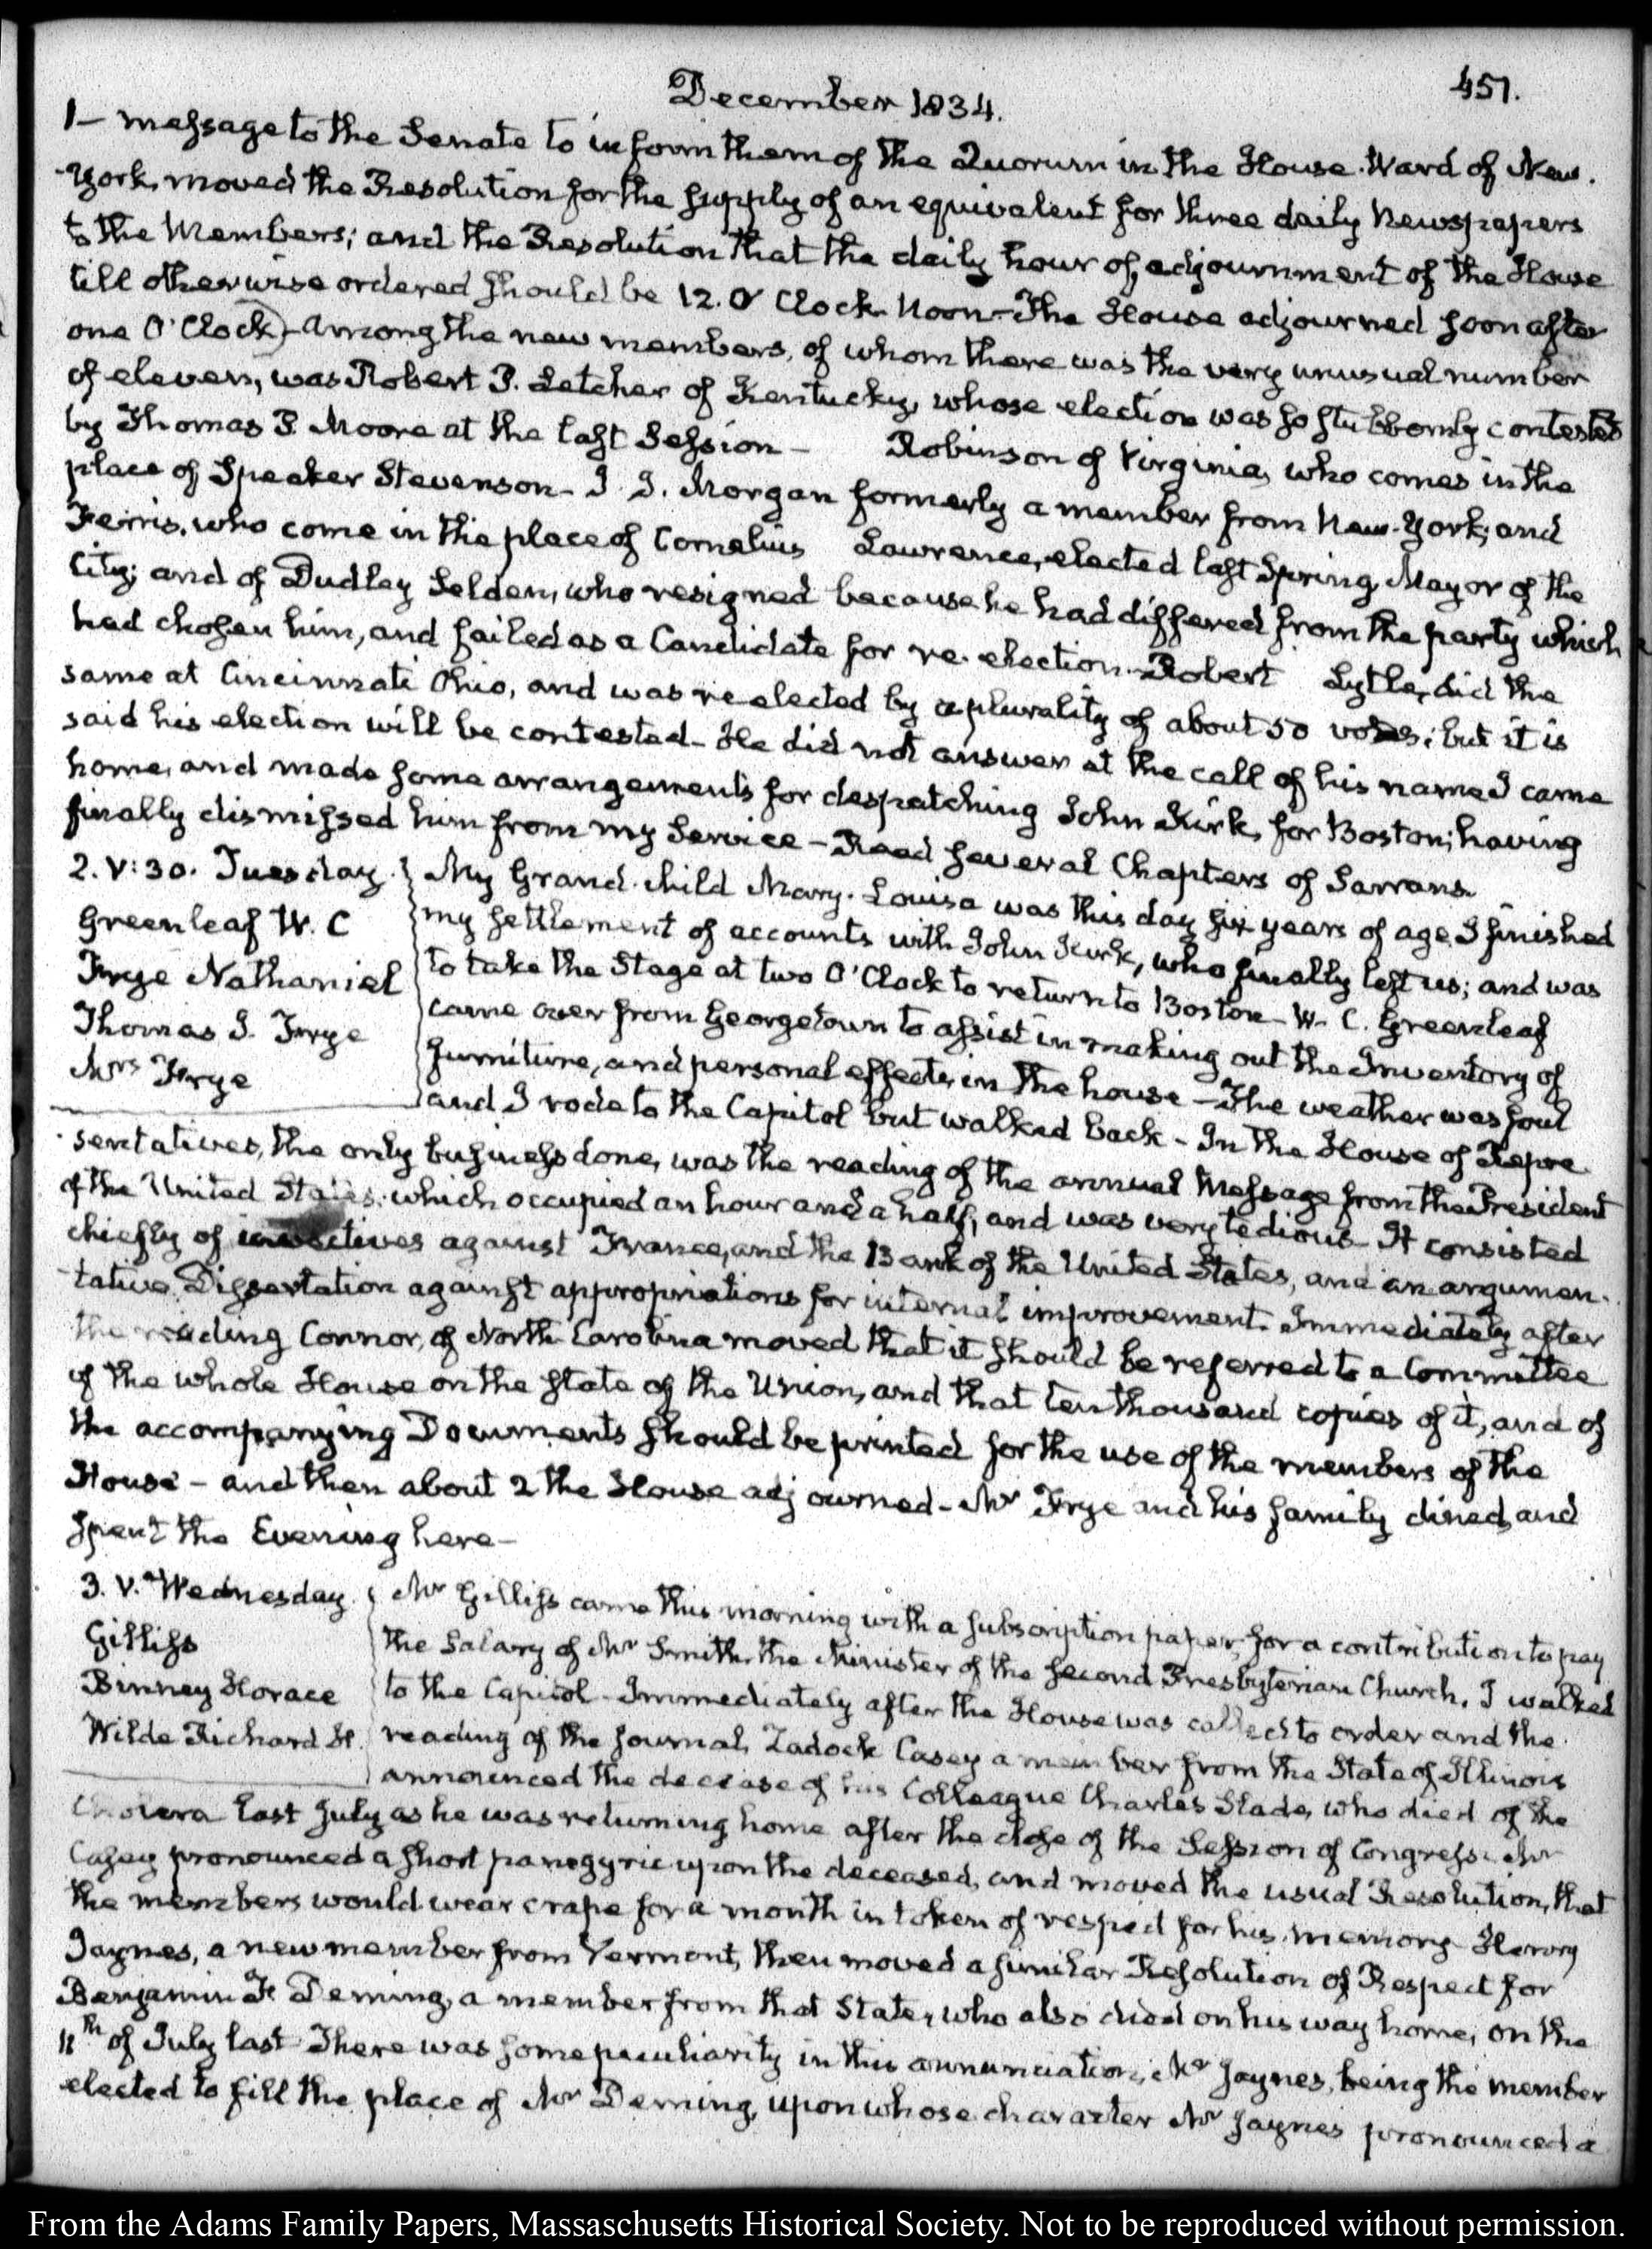 December 1834.
451.
1— message to the Senate to inform them of the Quorum in the House. Ward of New-
-York, moved the Resolution for the supply of an equivalent for three daily Newspapers
to the Members; and the Resolution that the daily hour of adjournment of the House
till otherwise ordered should be 12. O'Clock Noon—The House adjourned soon after
one O'Clock)—Among the new members, of whom there was the very unusual number
of eleven, was Robert P. Letcher of Kentucky, whose election was so stubbornly contested
by Thomas P. Moore at the last Session— Robinson of Virginia, who comes in the
place of Speaker Stevenson— J. J. Morgan formerly a member from New-York; and
Ferris, who come in the place of Cornelius Lawrence, elected last Spring Mayor of the
City; and of Dudley Selden, who resigned because he had differed from the party which
had chosen him, and failed as a Candidate for re-election. Robert Lytle, did the
same at Cincinnati Ohio, and was re elected by a plurality of about 50 votes; but it is
said his election will be contested— He did not answer at the call of his name. I came
home, and made some arrangements for despatching John Kirk, for Boston; having
finally dismissed him from my Service— Read several Chapters of Sarrans.
2. V:30. Tuesday.
Greenleaf W. C
Frye Nathaniel
Thomas J. Frye
Mrs Frye
My Grand-child Mary-Louisa was this day six years of age. I finished
my settlement of accounts with John Kirk, who finally left us; and was
to take the Stage at two O'Clock to return to Boston— W. C. Greenleaf
came over from Georgetown to assist in making out the Inventory of
furniture, and personal effects, in the house—The weather was foul
and I rode to the Capitol but walked back— In the House of Repre-
-sentatives, the only business done, was the reading of the annual Message from the President
of the United States, which occupied an hour and a half, and was very tedious— It consisted
chiefly of invectives against France, and the Bank of the United States, and an argumen-
-tative Dissertation against appropriations for internal improvement. Immediately after
the reading Connor, of North-Carolina moved that it should be referred to a Committee
of the whole House on the state of the Union, and that ten thousand copies of it, and of
the accompanying Documents should be printed for the use of the members of the
House— and then about 2 the House adjourned— Mr Frye and his family dined, and
spent the Evening here—
3. V. Wednesday.
Gilliss
Binney Horace
Wilde Richard H.
Mr Gilliss came this morning with a subscription paper, for a contribution to pay
the Salary of Mr Smith, the Minister of the second Presbyterian Church. I walked
to the Capitol— Immediately after the House was called to order and the
reading of the Journal, Zadock Casey a member from the State of Illinois
announced the decease of his Colleague Charles Slade, who died of the
Cholera last July as he was returning home after the close of the Session of Congress. Mr
Casey pronounced a short panegyric upon the deceased, and moved the usual Resolution, that
the members would wear crape for a month in token of respect for his memory— Henry
Jaynes, a new member from Vermont, then moved a similar Resolution of Respect for
Benjamin F. Deming, a member from that State, who also died on his way home, on the
11th of July last— There was some peculiarity in this annunciation, Mr Jaynes, being the member
elected to fill the place of Mr Deming, upon whose character Mr Jaynes pronounced a
From the Adams Family Papers, Massachusetts Historical Society. Not to be reproduced without permission.